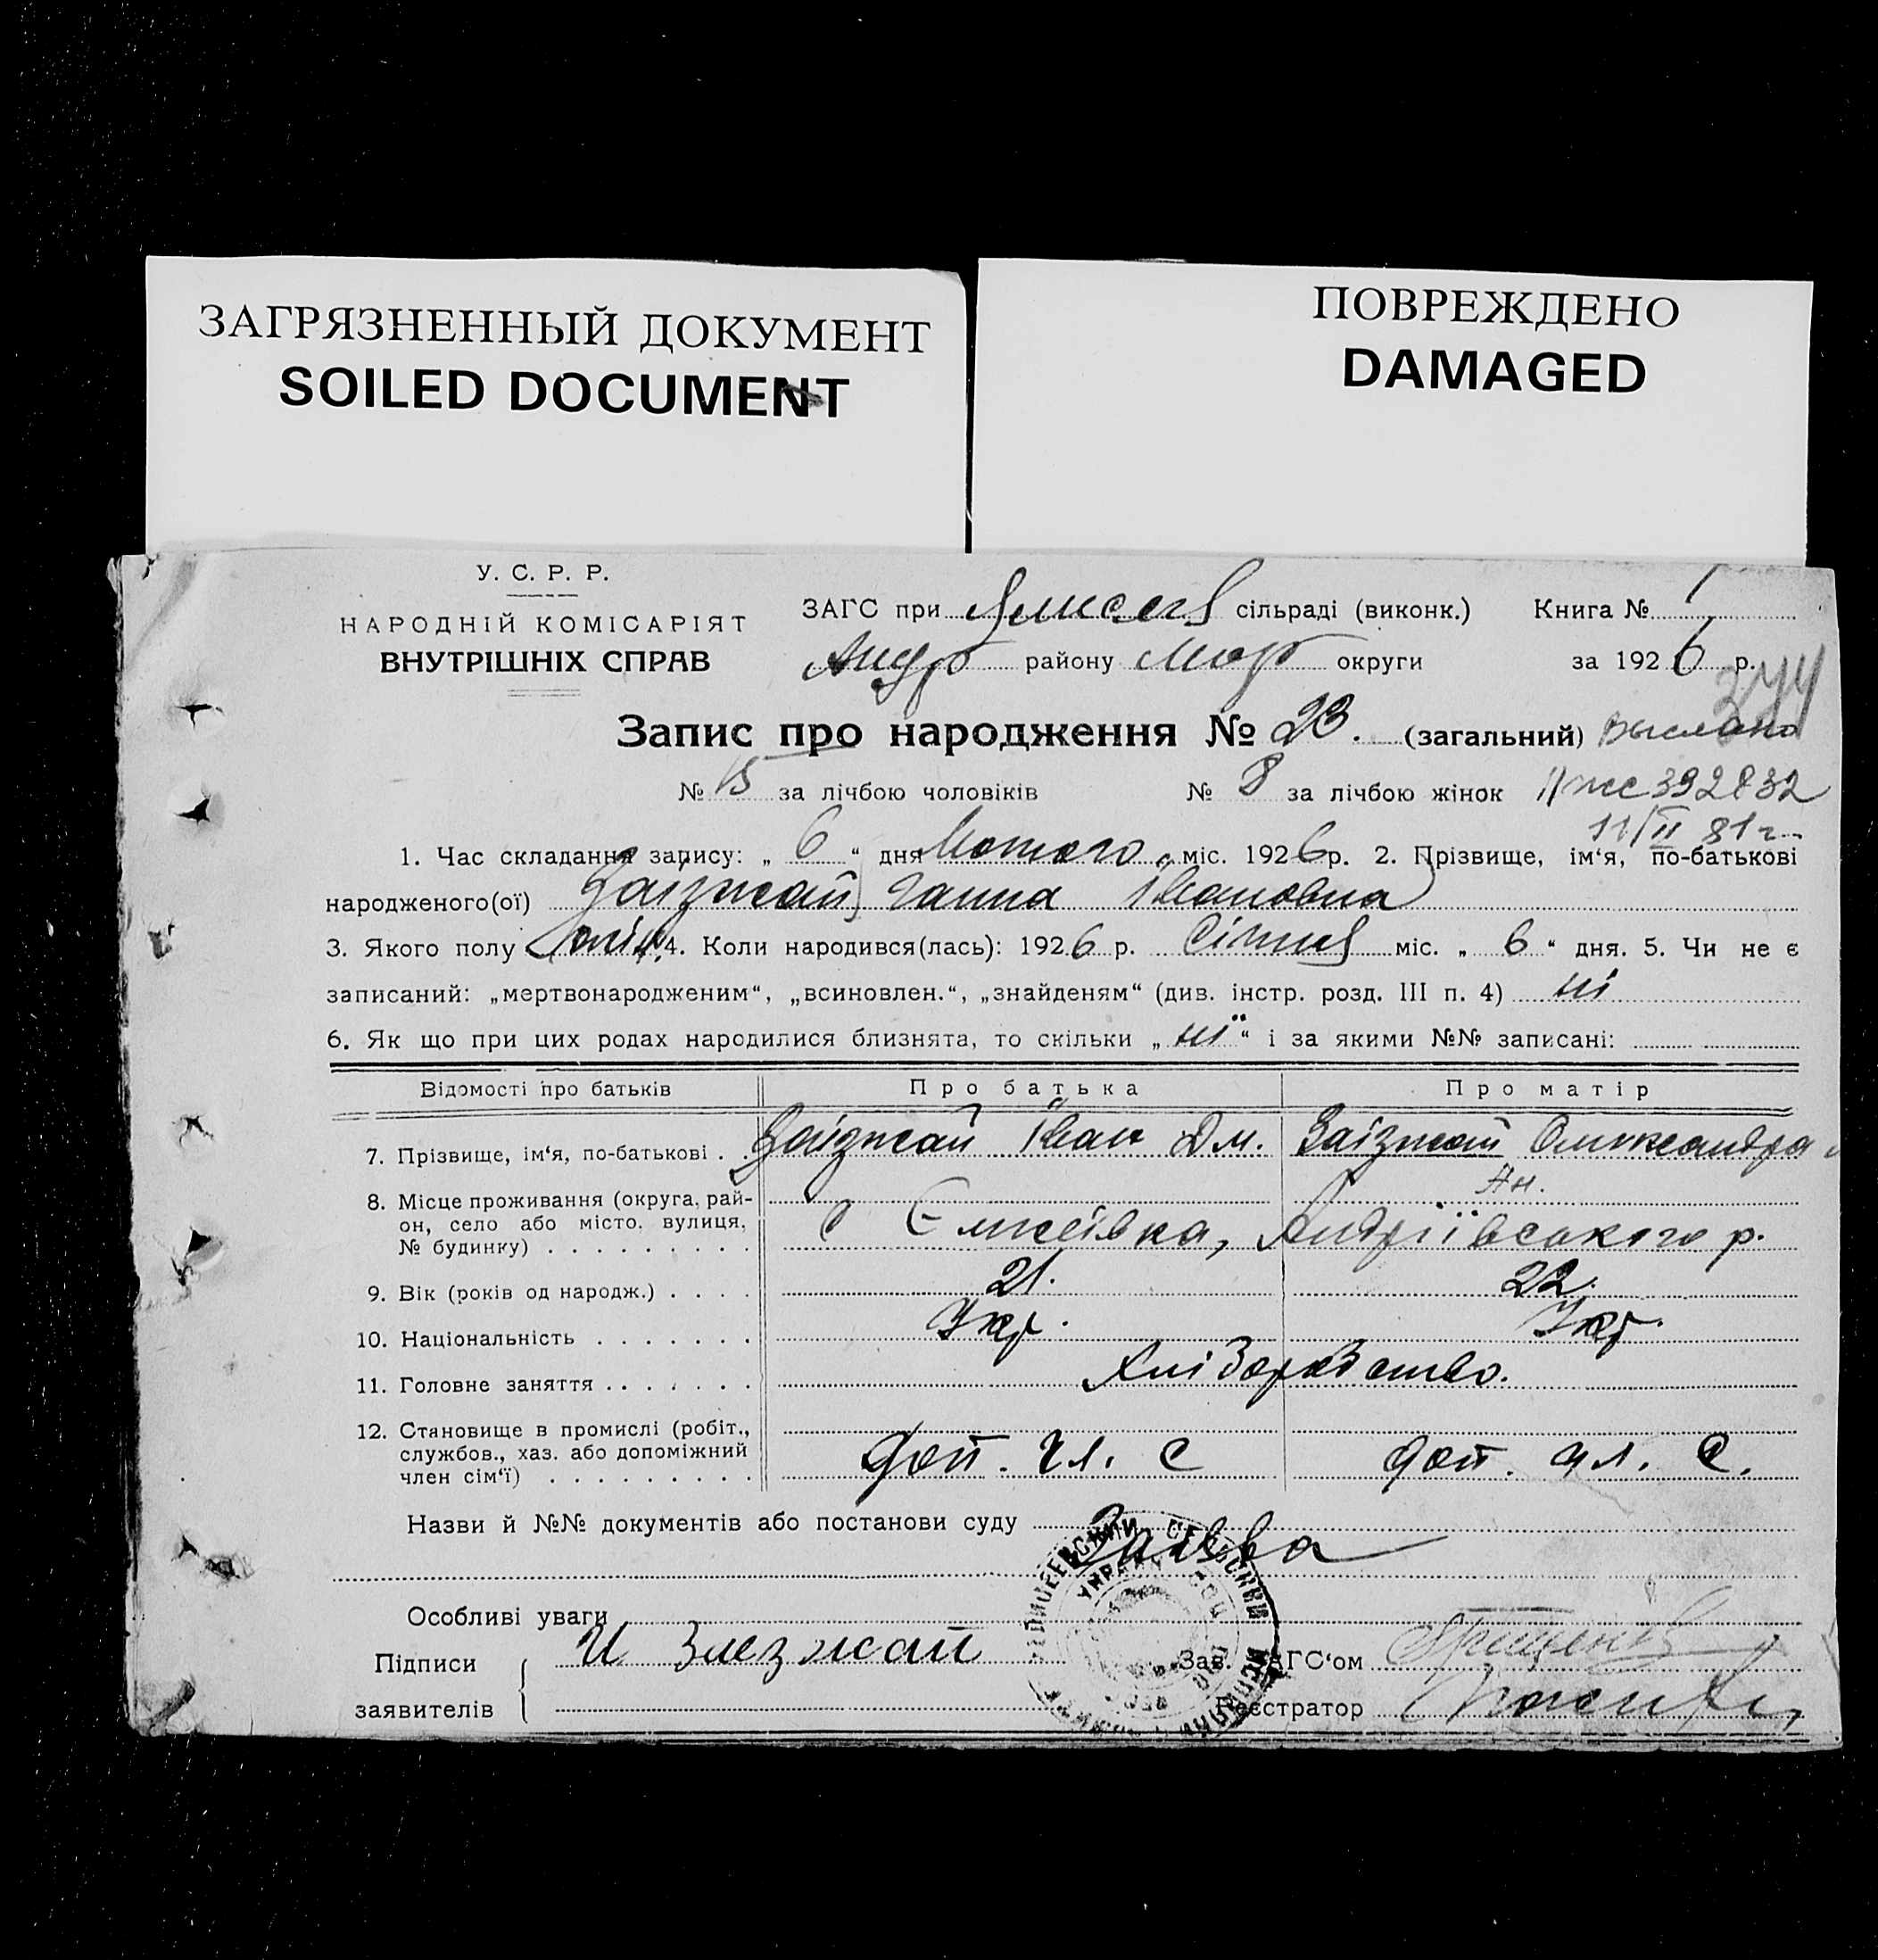 ЗАГРЯЗНЕННЫЙ ДОКУМЕНТ
SOILED DOCUMENT
ПОВРЕЖДЕНО
DAMAGED
У. С. Р. Р.
НАРОДНІЙ КОМІСАРІЯТ
ВНУТРІШНІХ СПРАВ
ЗАГС при сільраді (виконк.) Книга № 1
Андр району округи за 1926 р.
Запис про народження № 23. (загальний) Выслано
№ 15 за лічбою чоловіків № 8 за лічбою жінок 392832
11/II 81г.
1. Час складання запису: „ 6 “ дня Лютого міс. 1926 р. 2. Прізвище, ім‘я, по-батькові
народженого(ої) Заїзжай Ганна Івановна
3. Якого полу 4. Коли народився(лась): 1926 р. Січня міс. „ 6 “ дня. 5. Чи не є
записаний: „мертвонародженим“, „всиновлен.“, „знайденям“ (див. інстр. розд. III п. 4) ні
6. Як що при цих родах народилися близнята, то скільки „ ні “ і за якими №№ записані:
Відомості про батьків Про батька Про матір
7. Прізвище, ім‘я, по-батькові . . Заїзжай Іван Дм. Заїзжай Олександра
Ан.
8. Місце проживання (округа, рай-
он, село або місто, вулиця,
№ будинку) . . . . . . . . . с Єлисеївка, Андріївського р.
9. Вік (років од народж.) . . . . 21. 22.
10. Національність . . . . . . . Укр. Укр.
11. Головне заняття . . . . . . . Хліборобство.
12. Становище в промислі (робіт.,
службов., хаз. або допоміжний
член сім‘ї) . . . . . . . . . доп. чл. с доп. чл. с.
Назви й №№ документів або постанови суду Заява
Особливі уваги
Підписи
заявителів
И Заезжай
Зав. ЗАГС‘ом
Реєстратор